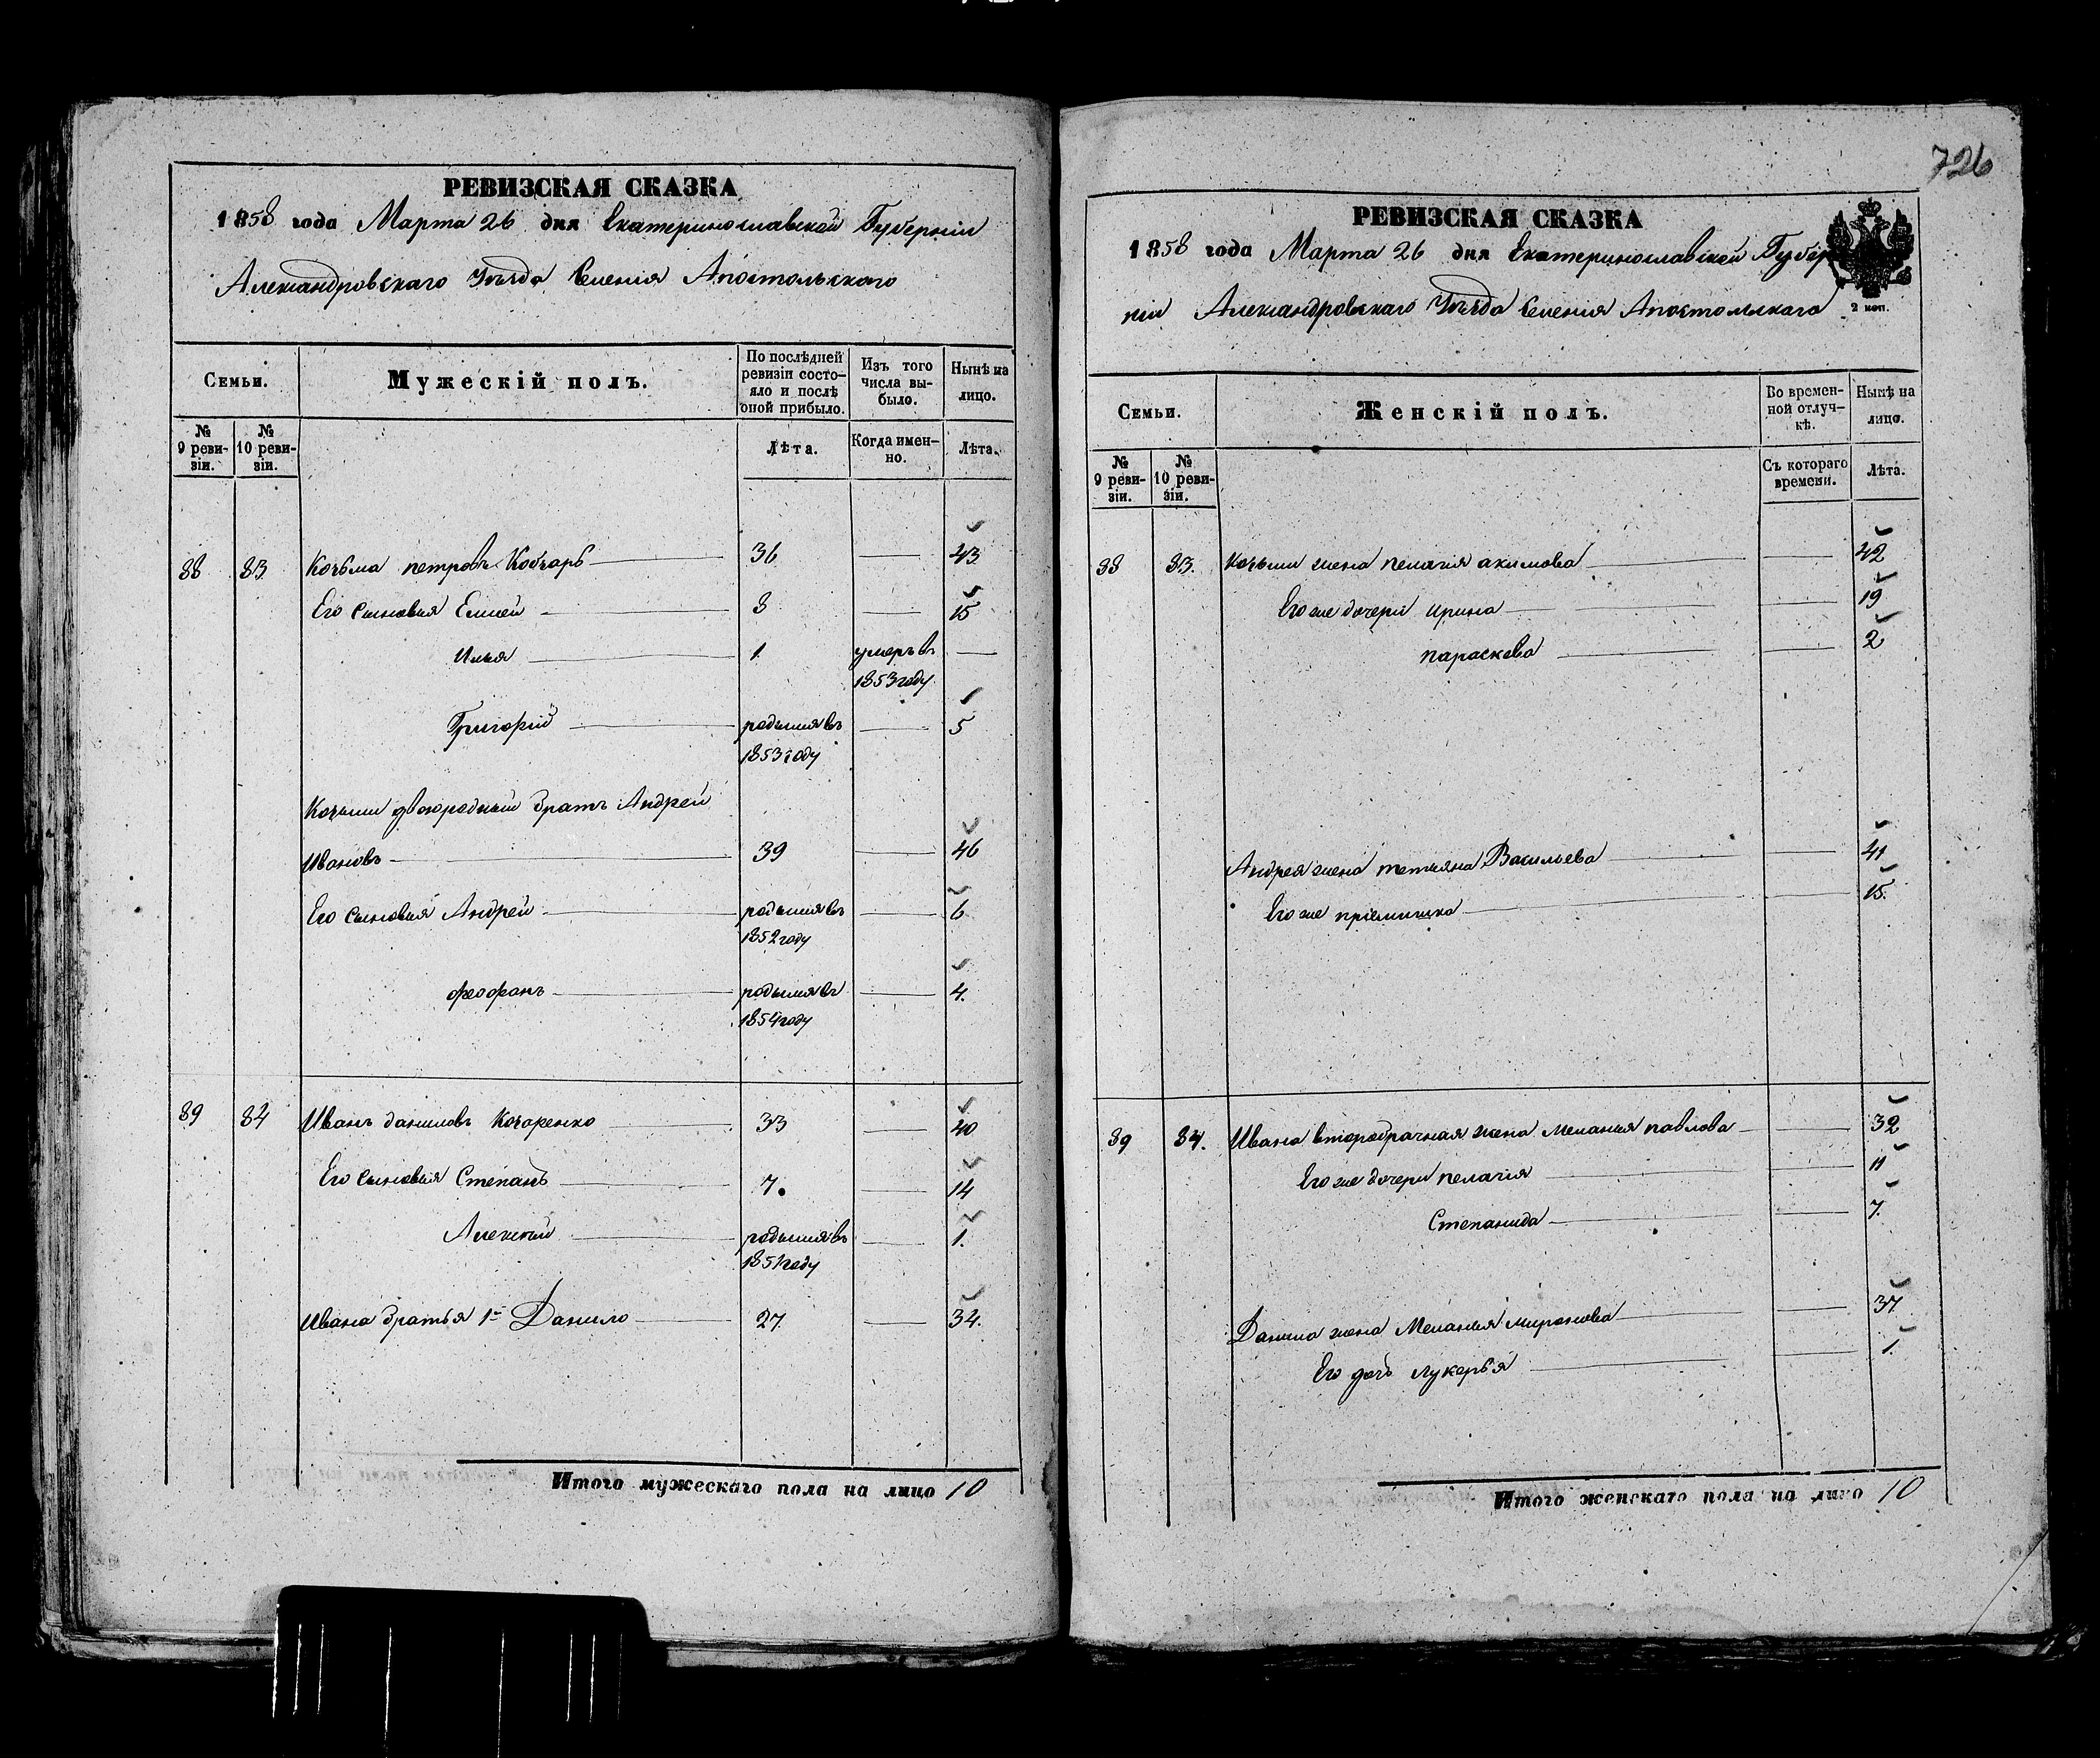 726
РЕВИЗСКАЯ СКАЗКА
1858 года Марта 26 дня Екатеринославской Губерніи
Александровскаго Уѣзда Селенія Апостольскаго
Семьи.
Мужескій полъ.
По послѣдней ревизіи состо-
яло и послѣ оной прибыло.
Изъ того числа вы-
было.
Нынѣ на лицо.
№ 9 реви-
зіи.
№ 10 реви-
зіи.
Лѣта.
Когда имен-
но.
Лѣта.
88 83. Козьма петровъ Кобзарь 36 43
Его сыновья Елисей 8 15
Илья 1. умеръ въ
1853 году
Григорій родился въ 5
1853 году
Козьмы двоюродный братъ Андрей
Ивановъ 39 46
Его сыновья Андрей родился въ 6
1852 году
феофанъ родился въ 4.
1854 году
89 84 Иванъ даниловъ 33 40
Его сыновья Степанъ 7. 14
Алексѣй родился въ 1.
году
Ивана братья 1й Данило 27. 34.
Итого мужескаго пола на лицо 10
РЕВИЗСКАЯ СКАЗКА
1858 года Марта 26 дня Екатеринославской Губер
ніи Александровскаго Уѣзда Селенія Апостольскаго
2 коп.
Семьи.
Женскій полъ.
Во времен-
ной отлуч-
кѣ.
Нынѣ на лицо.
№ 9 реви-
зіи.
№ 10 реви-
зіи.
Съ котораго времени.
Лѣта.
88 83. Козьмы жена пелагія акимова 42
Его же дочери ирина 19
параскева 2
Андрея жена татьяна Васильева 41
Его же пріемышка 15.
89 84. Ивана второбрачная жена Меланья павлова 32
Его же дочери пелагія 11
Степанида 7.
Данила жена Меланья миронова
Его дочь лукерья 1.
Итого женскаго пола на лицо 10